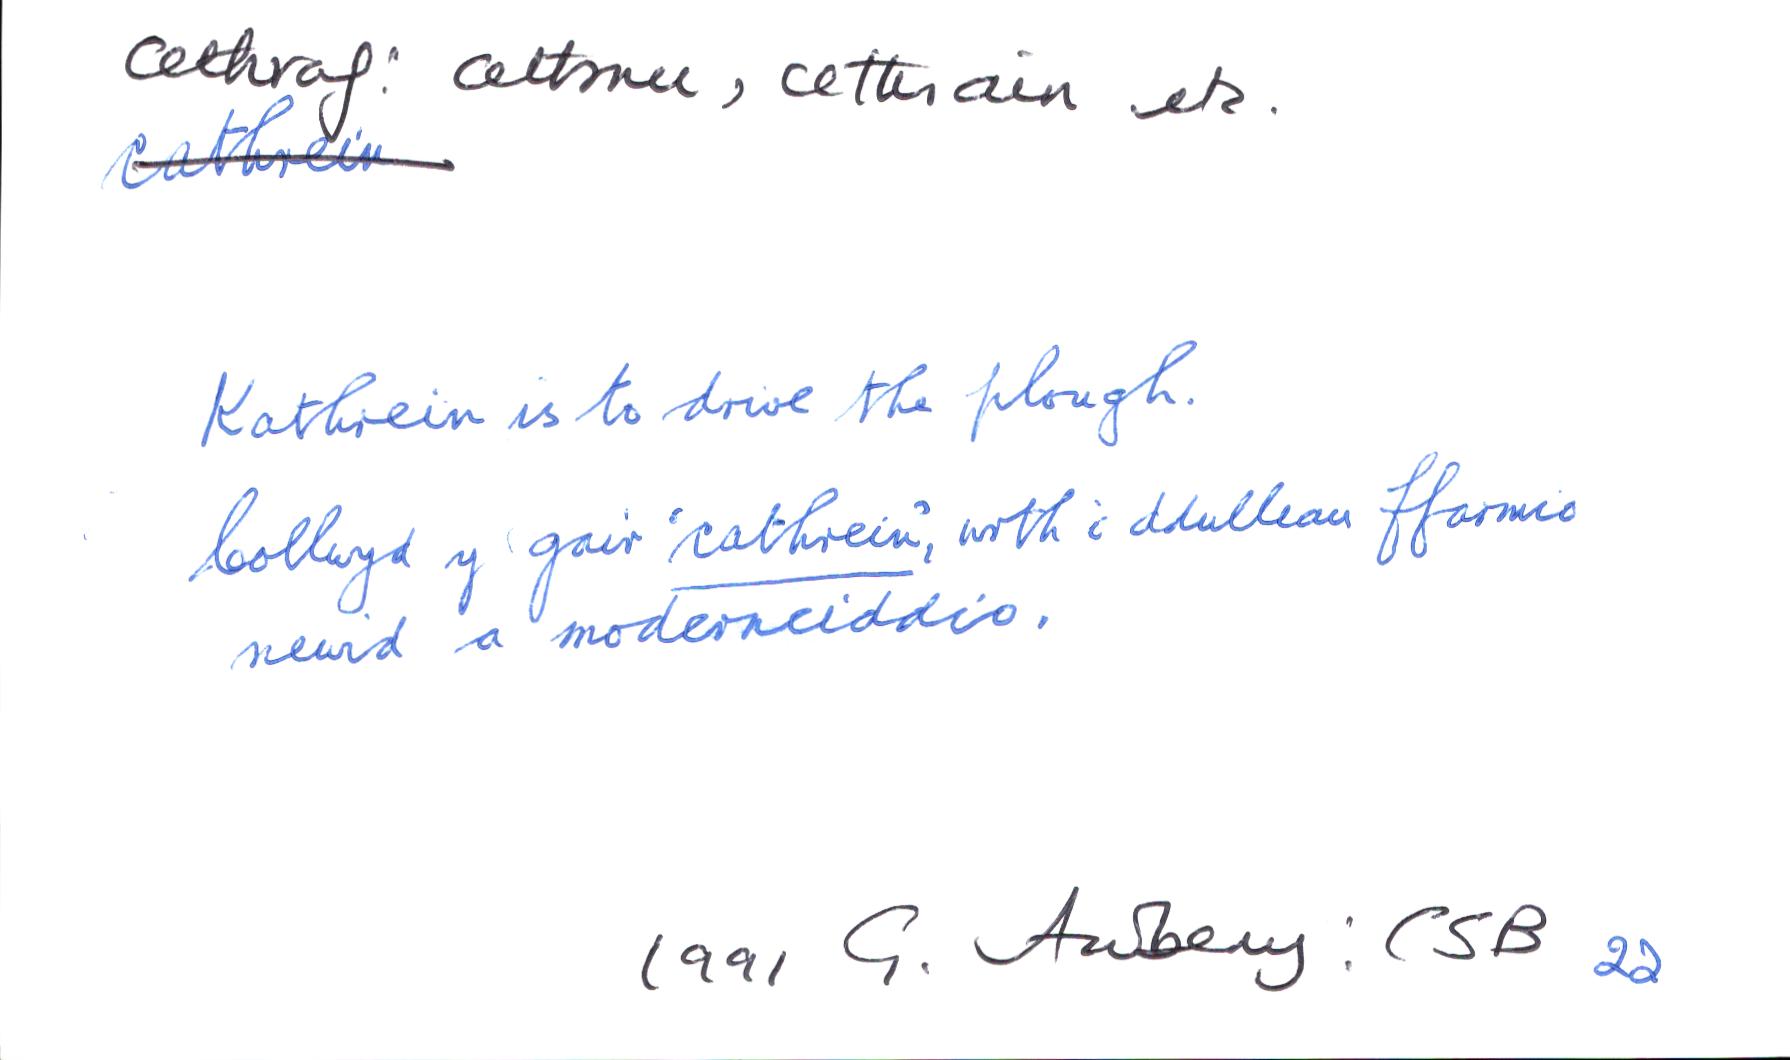 cethraf: cethru, cethrain etc.
cathrein
Kathrein is to drive the plough.
Collwyd y gair 'cathrein', wrth i ddulliau ffarmio
newid a moderneiddio.
1991 G. Awbery: CSB 22